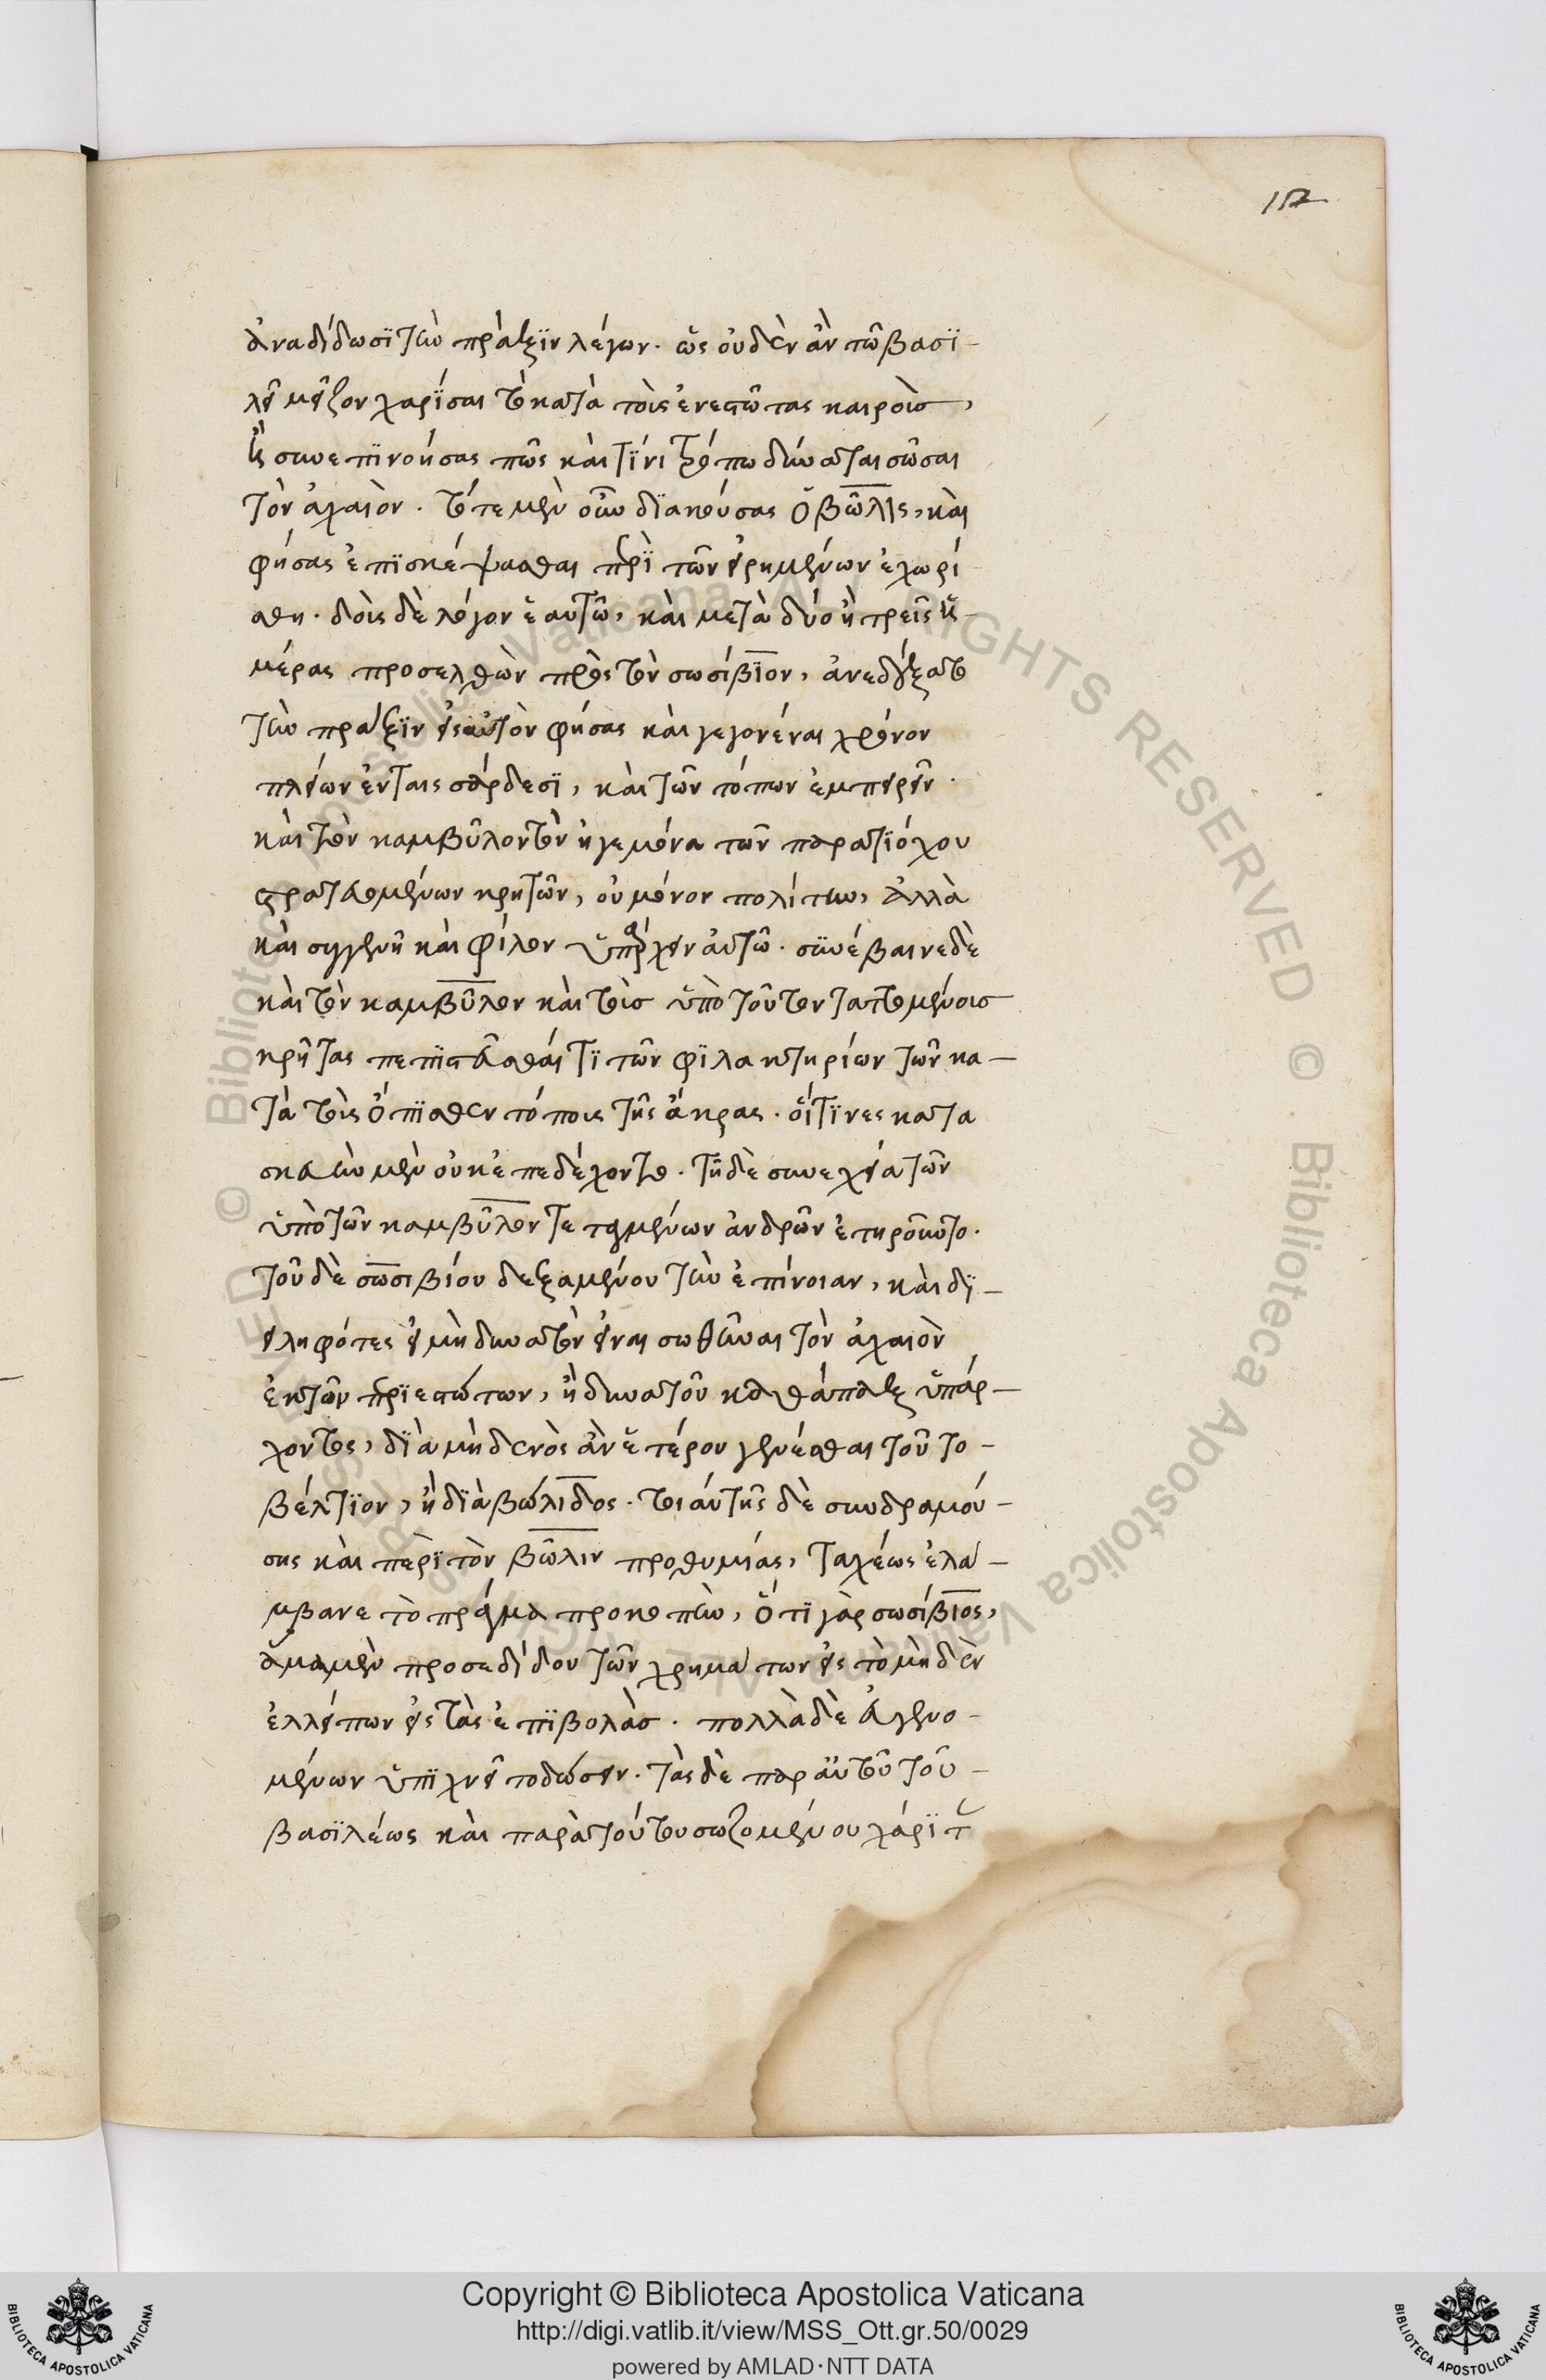 157
ἀναδίδωσϊ τὴν πρᾶξϊν λέγων. ὡς οὐδὲν ἂν τῶ βασϊ-
λεῖ μεῖζον χαρίσαι το κατὰ τοὺς ἐνεστῶτας καιροὺσ,
ἢ συνεπϊνοήσας πῶς καὶ τίνι τρόπω δύναται σῶσαι
τὸν ἀχαιὸν. τότε μὲν οὖν δϊακούσας ὁ βῶλις, καὶ
φήσας ἐπϊσκέψασθαι περὶ τῶν εἰρημένων ἐχωρί
σθη. δοὺς δὲ λόγον ἑαυτῶ, καὶ μετὰ δύο ἢ τρεῖς ἡ-
μέρας προσελθὼν πρὸς τὸν σωσίβϊον, ἀνεδέξατο
τὴν πρᾶξϊν εἰς αὐτὸν φήσας καὶ γεγονέναι χρόνον
πλείων ἐν ταις σάρδεσϊ, καὶ τῶν τόπων ἐμπειρεῖν.
καὶ τὸν καμβύλον τὸν ἡγεμόνα τῶν παρ ἀντϊόχου
στρατευομένων κρητῶν, οὐ μόνον πολίτην, ἀλλὰ
καὶ συγγενῆ καὶ φίλον ὑπάρχειν αὐτῶ. συνέβαινε δὲ
καὶ τὸν καμβύλον καὶ τοὺσ ὑπὸ τοῦτον ταττομένουσ
κρῆτας πεπϊστεῦσθαί τϊ τῶν φϊλακτηρίων τῶν κα-
τὰ τοὺς ὄπϊσθεν τόπους τῆς ἄκρας. οἵτϊνες κατα
σκευὴν μὲν οὐκ ἐπεδέχοντο. τῆ δὲ συνεχεία τῶν
ὑπὸ τῶν καμβύλον τεταγμένων ἀνδρῶν ἐτηροῦντο.
τοῦ δὲ σωσιβίου δεξαμένου τὴν ἐπίνοιαν, καὶ δϊ-
ειληφότες εἰ μὴ δυνατὸν εἶναι σωθῆναι τὸν ἀχαιὸν
ἐκ τῶν περϊεστώτων, ἢ δυνατοῦ καθάπαξ ὑπάρ-
χοντος, δϊὰ μηδενὸς ἂν ἑτέρου γενέσθαι τοῦτο
βέλτϊον, ἢ δϊὰ βώλιδος. τοιαύτης δὲ συνδραμού-
σης καὶ περὶ τὸν βῶλιν προθυμίας, ταχέως ἐλά-
μβανε τὸ πρᾶγμα προκοπὴν, ὅ τϊ γὰρ σωσίβϊος,
ἅμα μὲν προσεδίδου τῶν χρημάτων εἰς τὸ μηδὲν
ἐλλείπων εἰς τὰς ἐπϊβολὰσ. πολλὰ δὲ εὐγενο-
μένων ὑπϊχνεῖτο δώσειν. τὰς δὲ παρ αὐτοῦ τοῦ
βασϊλέως καὶ παρὰ τούτου σωζομένου χάρϊτ
Copyright © Biblioteca Apostolica Vaticana
http://digi.vatlib.it/view/MSS_Ott.gr.50/0029
powered by AMLAD·NTT DATA